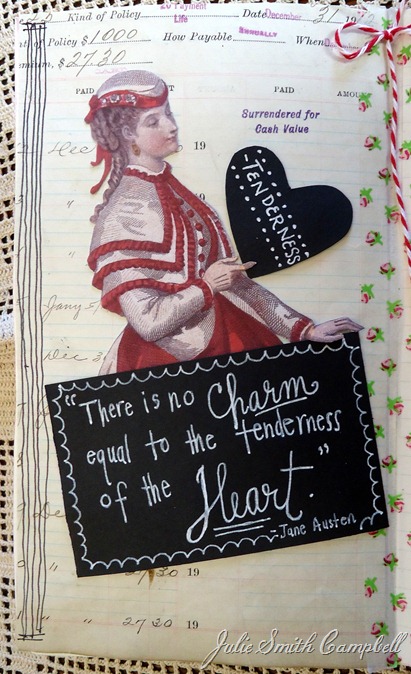 20 Payment
Kind of Policy Life Date December 31 19
nt of Policy $1000 How Payable ANNUALLY When December
mium, $27.30
PAID PAID AMOU
Surrendered for
Cash Value
Dec 19
-TENDERNESS
"
"
Jany
Dec 3
"There is no Charm
equal to the tenderness
of the Heart."
-Jane Austen
De
27 30 19
" " 27 30 19
Julie Smith Campbell